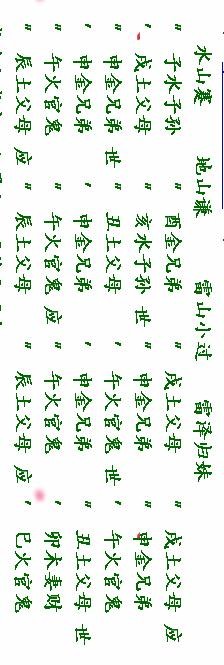 水山蹇 地山谦 雷山小过 雷泽归妹
" 子水子孙 " 酉金兄弟 " 戌土父母 " 戌土父母 应
' 戌土父母 " 亥水子孙 世 " 申金兄弟 " 申金兄弟
" 申金兄弟 世 " 丑土父母 ' 午火官鬼 世 ' 午火官鬼
' 申金兄弟 ' 申金兄弟 ' 申金兄弟 " 丑土父母 世
" 午火官鬼 " 午火官鬼 应 " 午火官鬼 ' 卯木妻财
" 辰土父母 应 " 辰土父母 " 辰土父母 应 ' 巳火官鬼